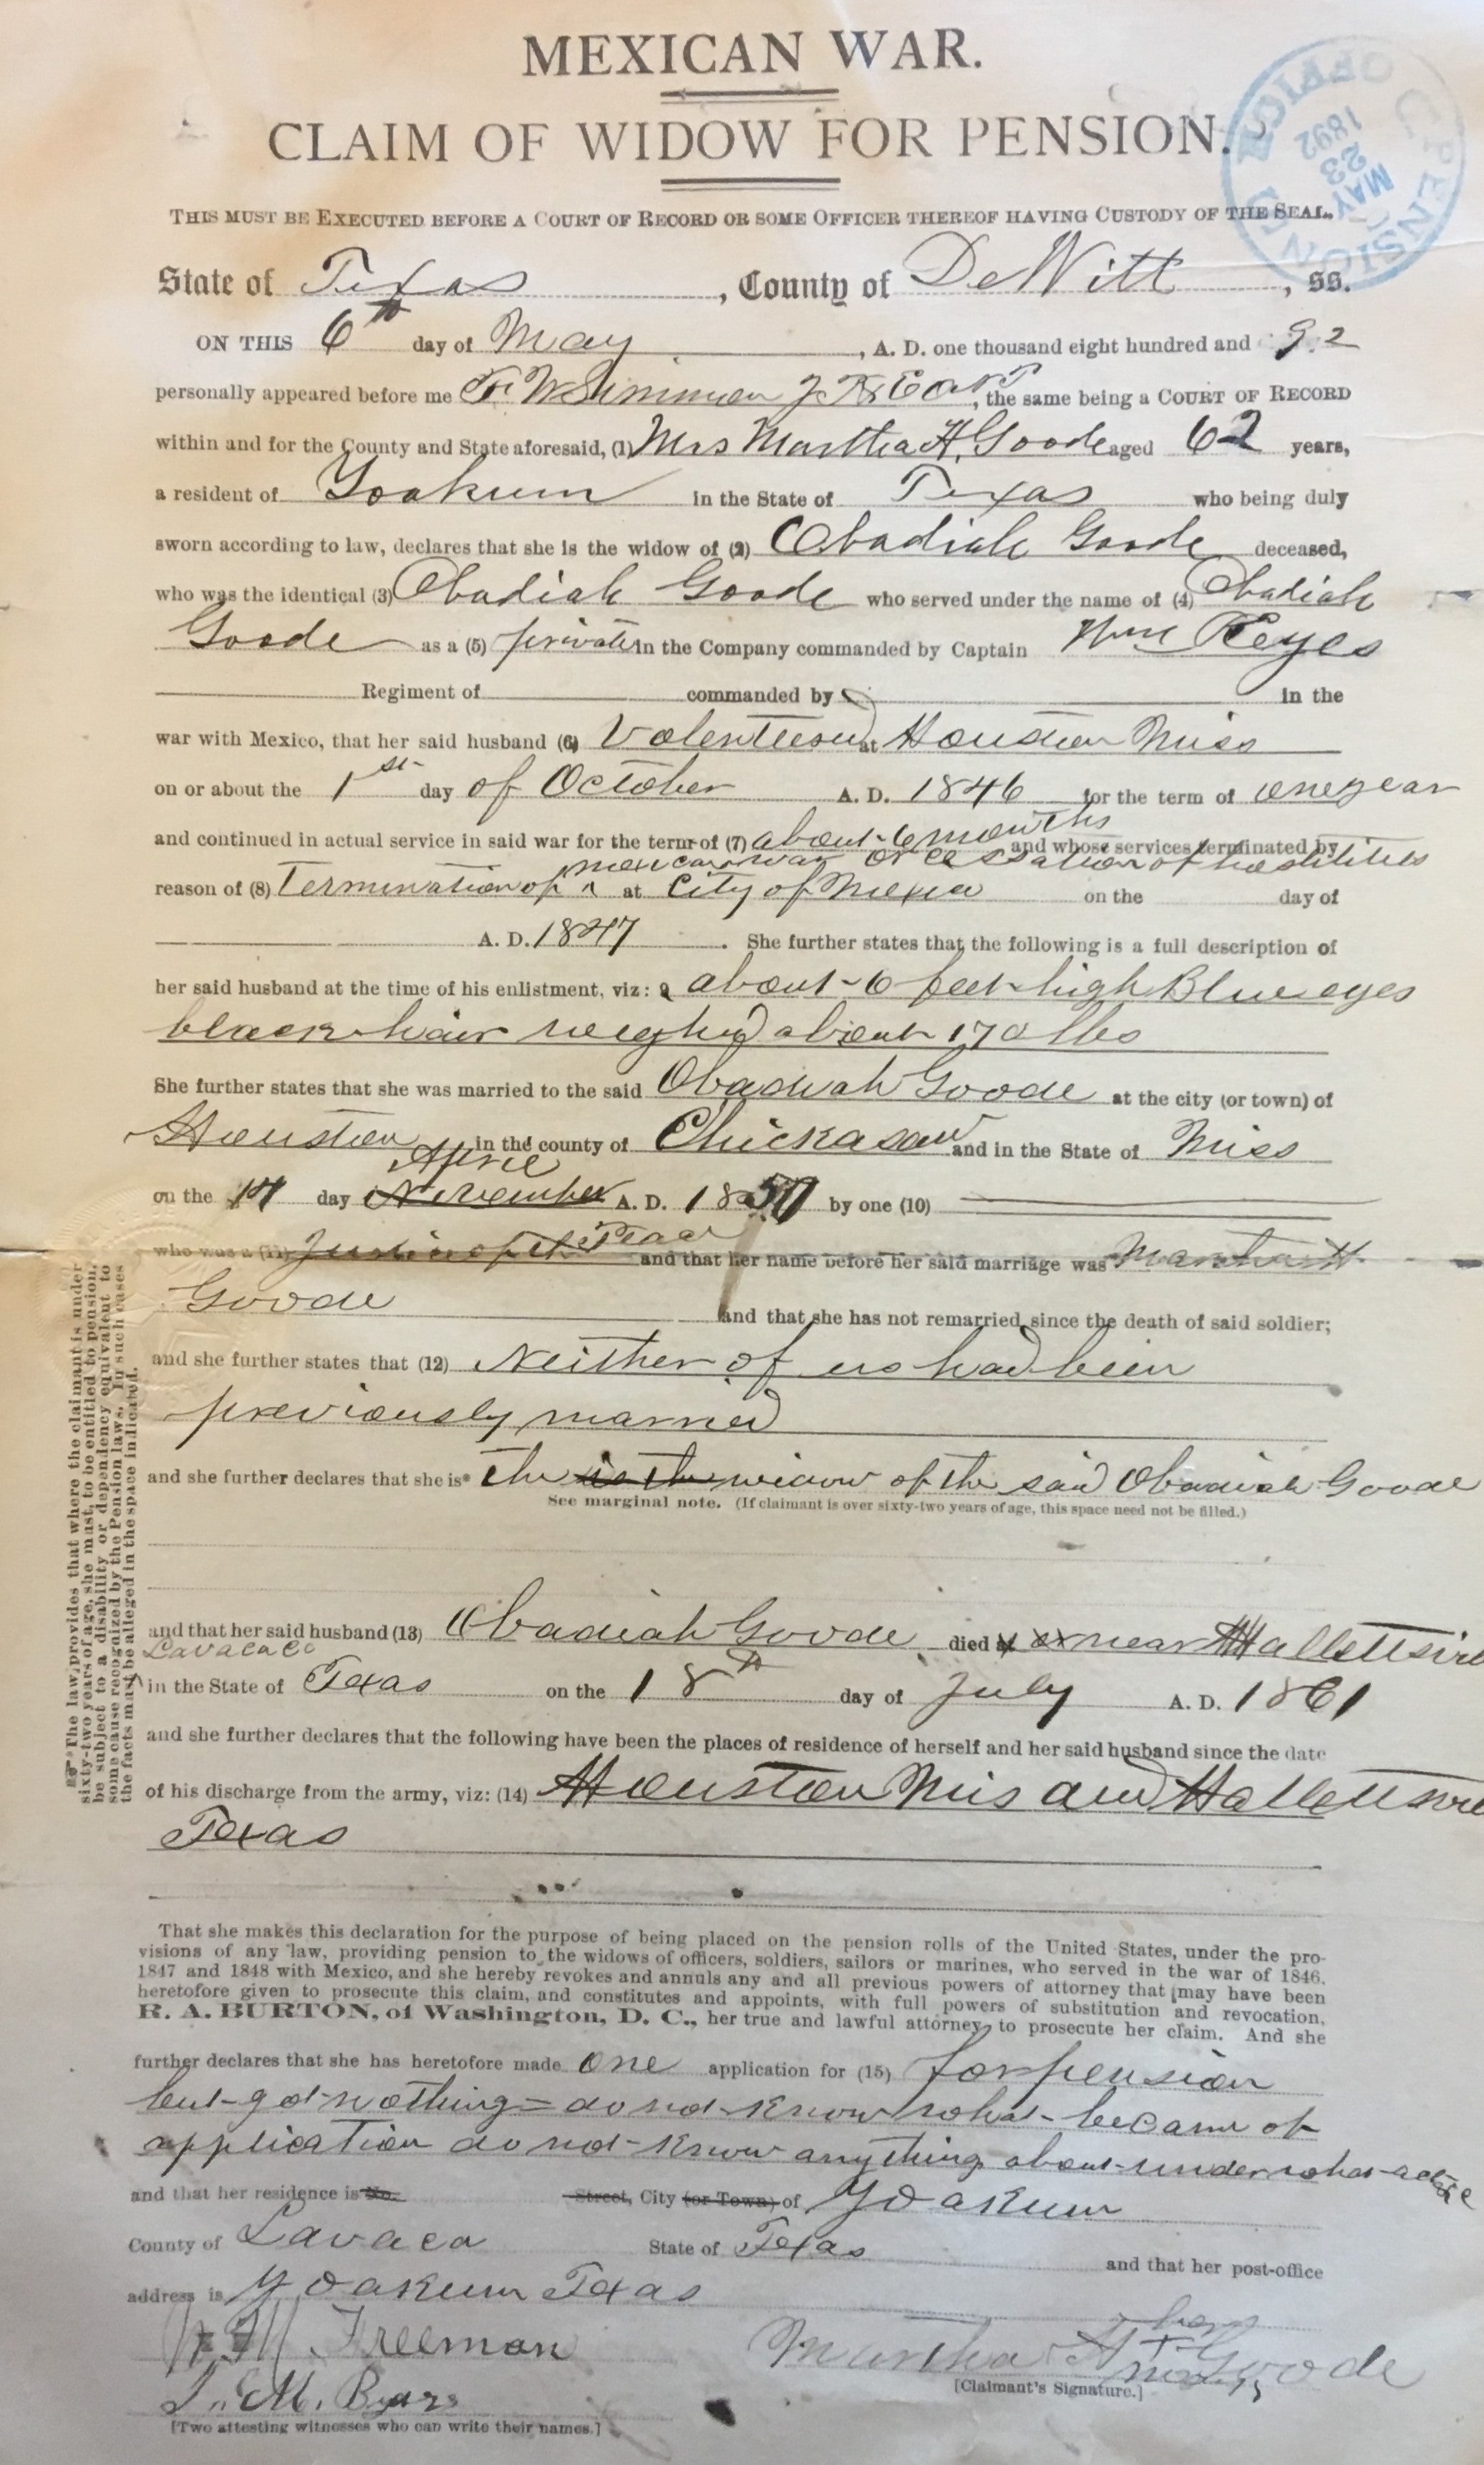 MEXICAN WAR.
CLAIM OF WIDOW FOR PENSION.
PENSION OFFICE
MAY 23 1892
THIS MUST BE EXECUTED BEFORE A COURT OF RECORD OR SOME OFFICER THEREOF HAVING CUSTODY OF THE SEAL.
State of Texas, County of DeWitt, ss.
ON THIS 6th day of May, A. D. one thousand eight hundred and 92
personally appeared before me, the same being a COURT OF RECORD
within and for the County and State aforesaid, (1) Mrs Martha H. Goode aged 62 years,
a resident of Yoakum in the State of Texas who being duly
sworn according to law, declares that she is the widow of (2) Obadiah Goode deceased,
who was the identical (3) Obadiah Goode who served under the name of (4) Obadiah
Goode as a (5) private in the Company commanded by Captain Wm Reyes
Regiment of commanded by in the
war with Mexico, that her said husband (6) Volenteered at Houston Miss
on or about the 1st day of October A. D. 1846 for the term of one year
and continued in actual service in said war for the term of (7) about 6 months and whose services terminated by
mexican war or cessation of hostilities
reason of (8) Termination of ^ at City of Mexico on the day of
A. D. 1847. She further states that the following is a full description of
her said husband at the time of his enlistment, viz: 9 about 6 feet high Blue eyes
black hair weighed about 170 lbs
She further states that she was married to the said Obadiah Goode at the city (or town) of
Houston in the county of Chickasaw and in the State of Miss
April
on the 14 day November A. D. 1850 by one (10)
who was a (11) Justice of the Peace and that her name before her said marriage was Martha H
Goode and that she has not remarried since the death of said soldier;
and she further states that (12) Neither of us had been
previously married
and she further declares that she is* the is the widow of the said Obadiah Goode
See marginal note. (If claimant is over sixty-two years of age, this space need not be filled.)
and that her said husband (13) Obadiah Goode died at near Hallettsvil
Lavaca Co
^ in the State of Texas on the 18th day of July A. D. 1861
and she further declares that the following have been the places of residence of herself and her said husband since the date
of his discharge from the army, viz: (14) Houston Mis and Hallettsvil
Texas
*The law provides that where the claimant is under
sixty-two years of age, she must, to be entitled to pension,
be subject to a disability or dependency equivalent to
some cause recognized by the Pension laws. In such cases
the facts must be alleged in the space indicated.
That she makes this declaration for the purpose of being placed on the pension rolls of the United States, under the pro-
visions of any law, providing pension to the widows of officers, soldiers, sailors or marines, who served in the war of 1846,
1847 and 1848 with Mexico, and she hereby revokes and annuls any and all previous powers of attorney that may have been
heretofore given to prosecute this claim, and constitutes and appoints, with full powers of substitution and revocation,
R. A. BURTON, of Washington, D. C., her true and lawful attorney to prosecute her claim. And she
further declares that she has heretofore made one application for (15) for pension
but got nothing = do not know what became of
application do not know anything about under what act
and that her residence is No. Street, City (or Town) of Yoakum
County of Lavaca State of Texas and that her post-office
address is Yoakum Texas
Freeman
her
Martha H + Goode
mark
L. M. Byars
[Claimant's Signature.]
[Two attesting witnesses who can write their names.]